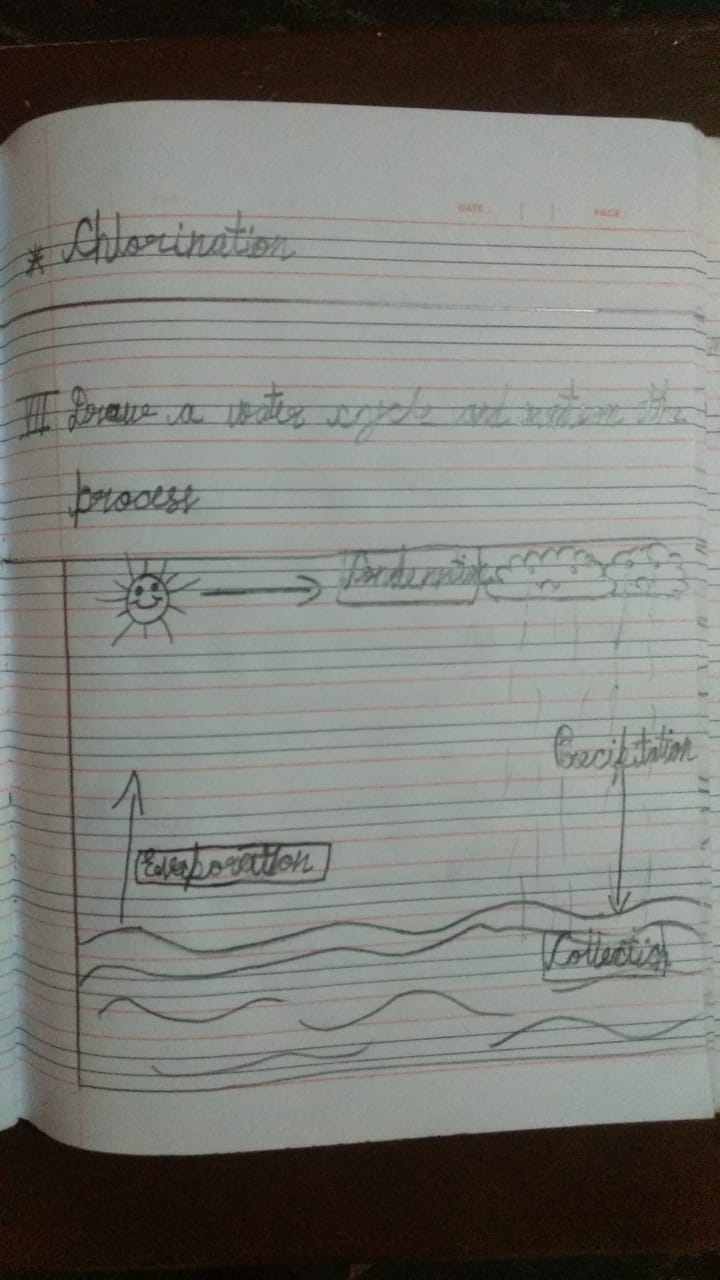 DATE: PAGE:
* Chlorination
VII Draw a water cycle and mention the
process
Condensation
Precipitation
Evaporation
Collection